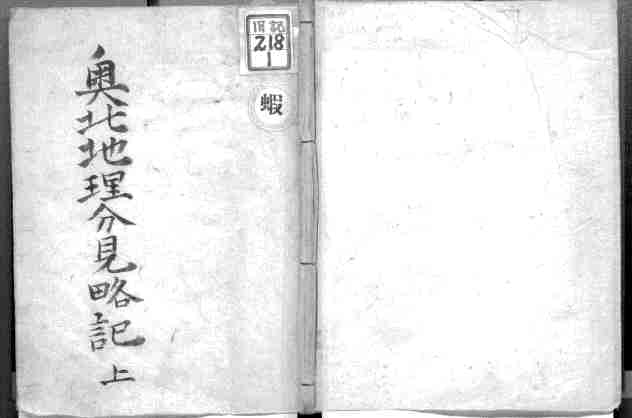 奥北地理分見略記 上
旧記
218
1
蝦